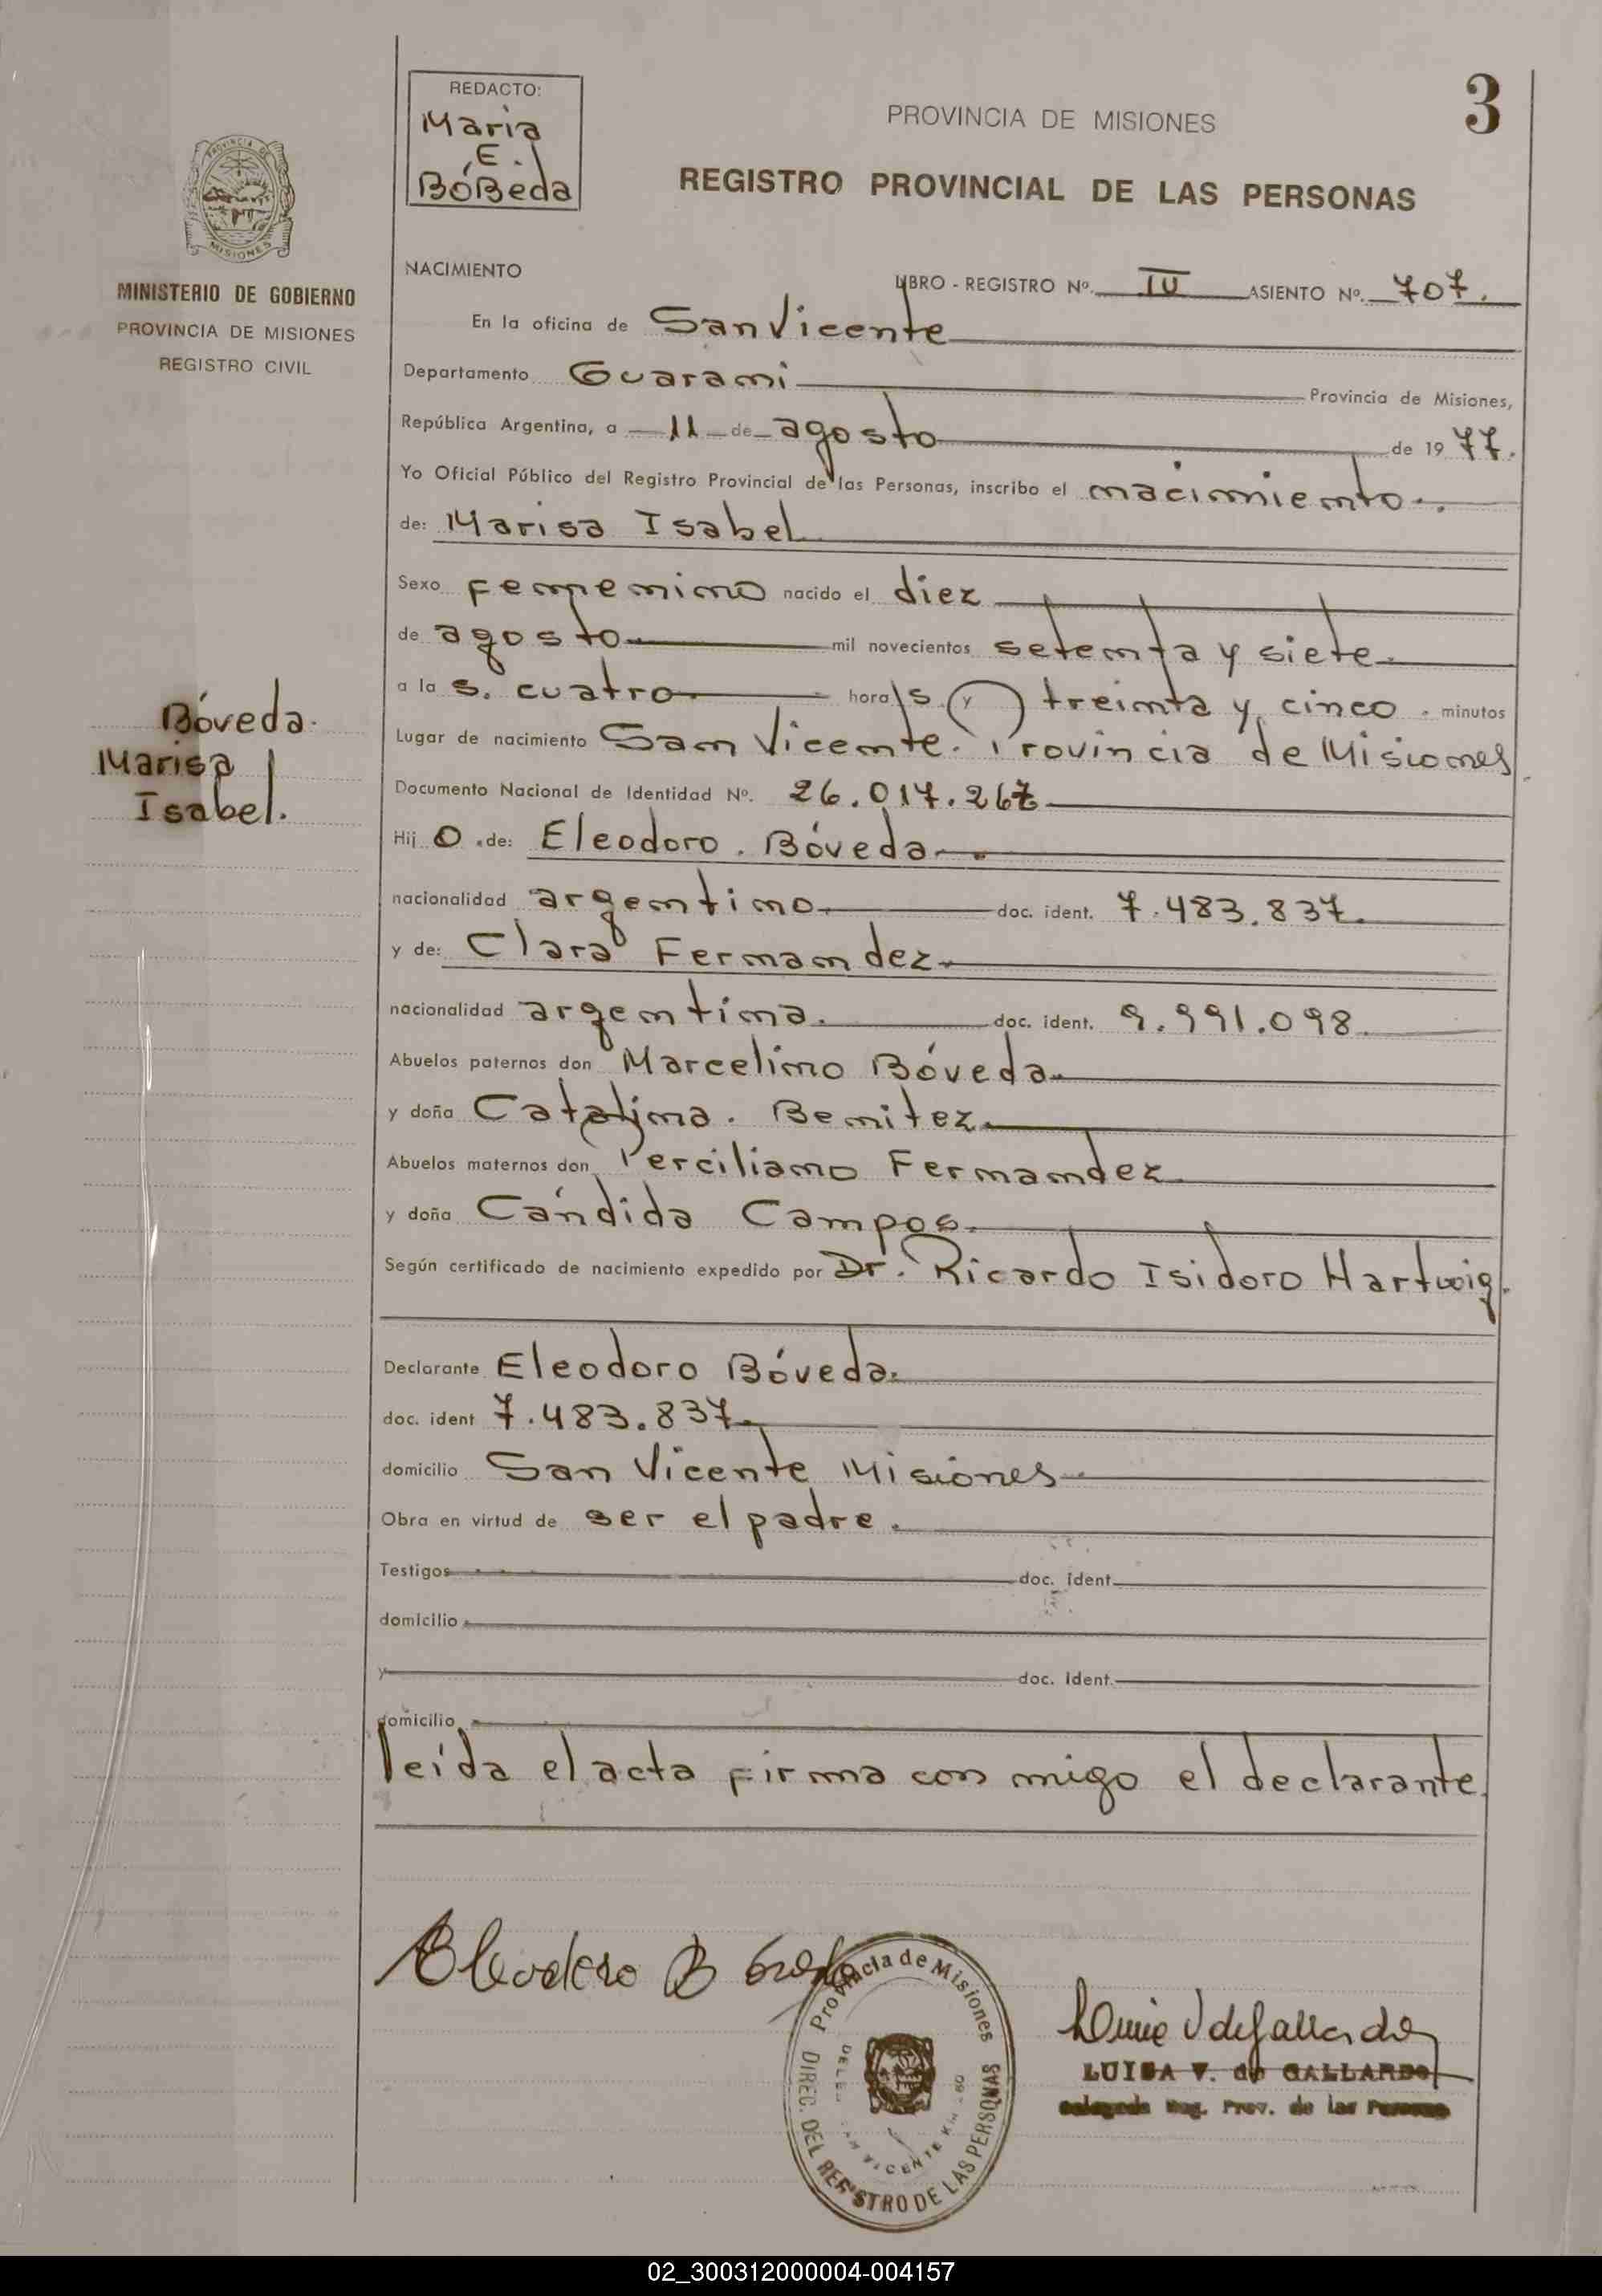 REDACTO:
Maria
E.
BóBeda
PROVINCIA DE MISIONES
3
REGISTRO PROVINCIAL DE LAS PERSONAS
PROVINCIA DE
MISIONES
MINISTERIO DE GOBIERNO
PROVINCIA DE MISIONES
REGISTRO CIVIL
NACIMIENTO
LIBRO - REGISTRO Nº. IV ASIENTO Nº. 707.
En la oficina de San Vicente
Departamento Guarami Provincia de Misiones,
República Argentina, a 11 de agosto de 1977.
Yo Oficial Público del Registro Provincial de las Personas, inscribo el nacimiento.
de: Marisa Isabel
Sexo femenino nacido el diez
de agosto mil novecientos setenta y siete
a la s. cuatro hora s y treinta y cinco. minutos
Lugar de nacimiento San Vicente. Provincia de Misiones
Documento Nacional de Identidad Nº. 26.017.267
Hij o de: Eleodoro. Bóveda
nacionalidad argentino doc. ident. 7.483.837.
y de: Clara Fernandez
nacionalidad argentina. doc. ident. 9.991.098.
Abuelos paternos don Marcelino Bóveda
y doña Catalina. Benitez
Abuelos maternos don Perciliano Fernandez
y doña Cándida Campos.
Según certificado de nacimiento expedido por Dr. Ricardo Isidoro Hartwig.
Declarante Eleodoro Bóveda.
doc. ident 7.483.837
domicilio San Vicente Misiones
Obra en virtud de ser el padre.
Testigos doc. ident.
domicilio
y doc. Ident.
domicilio
leída el acta firma con migo el declarante.
Bóveda.
Marisa
Isabel.
Eleodoro B
Provincia de Misiones
DIREC. DEL REGISTRO DE LAS PERSONAS
LUISA V. de GALLARDO
Delegada Reg. Prov. de las Personas
02_300312000004-004157